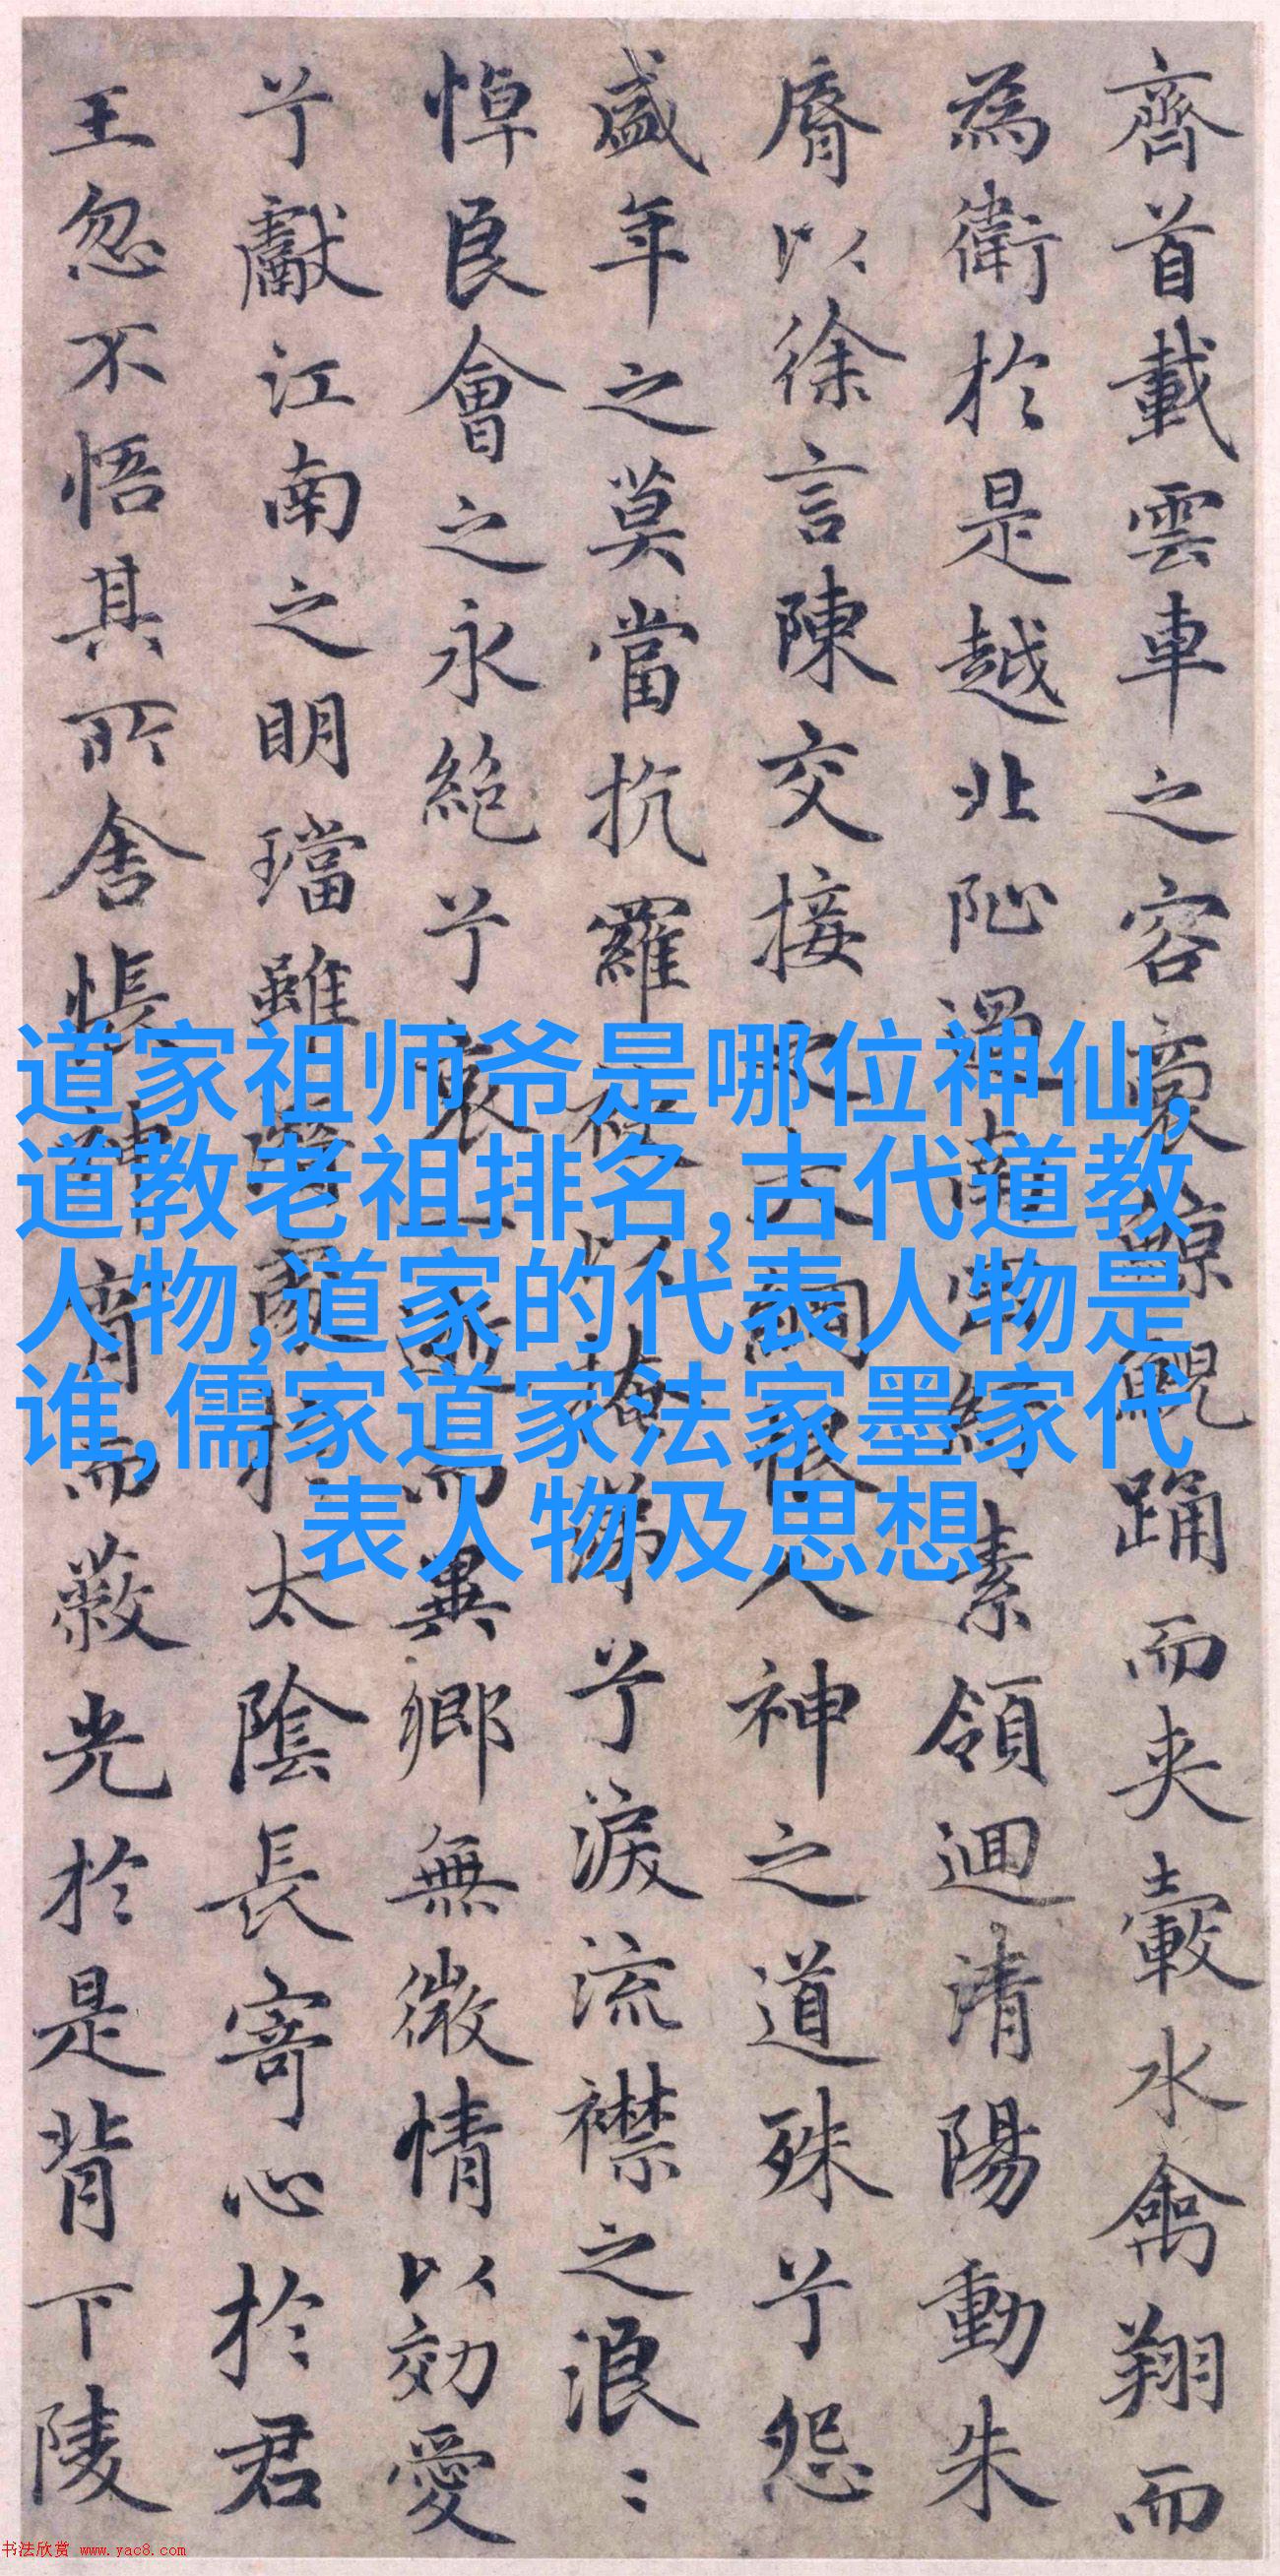 齊首載雲車之容裔鯨鯢踊而夾轂水禽翔而
為衛於是越北沚過南岡紆素領迴清陽動朱
脣以徐言陳交接之大綱恨人神之道殊兮怨
盛年之莫當抗羅袂以掩涕兮淚流襟之浪〻
悼良會之永絕兮哀一逝而異鄉無微情以効愛
兮獻江南之明璫雖潛處於太陰長寄心於君
王忽不悟其所舍悵神宵而蔽光於是背下陵
道家祖师爷是哪位神仙,
道教老祖排名,古代道教
人物,道家的代表人物是
谁,儒家道家法家墨家代
表人物及思想
书法欣赏 www.yac8.com